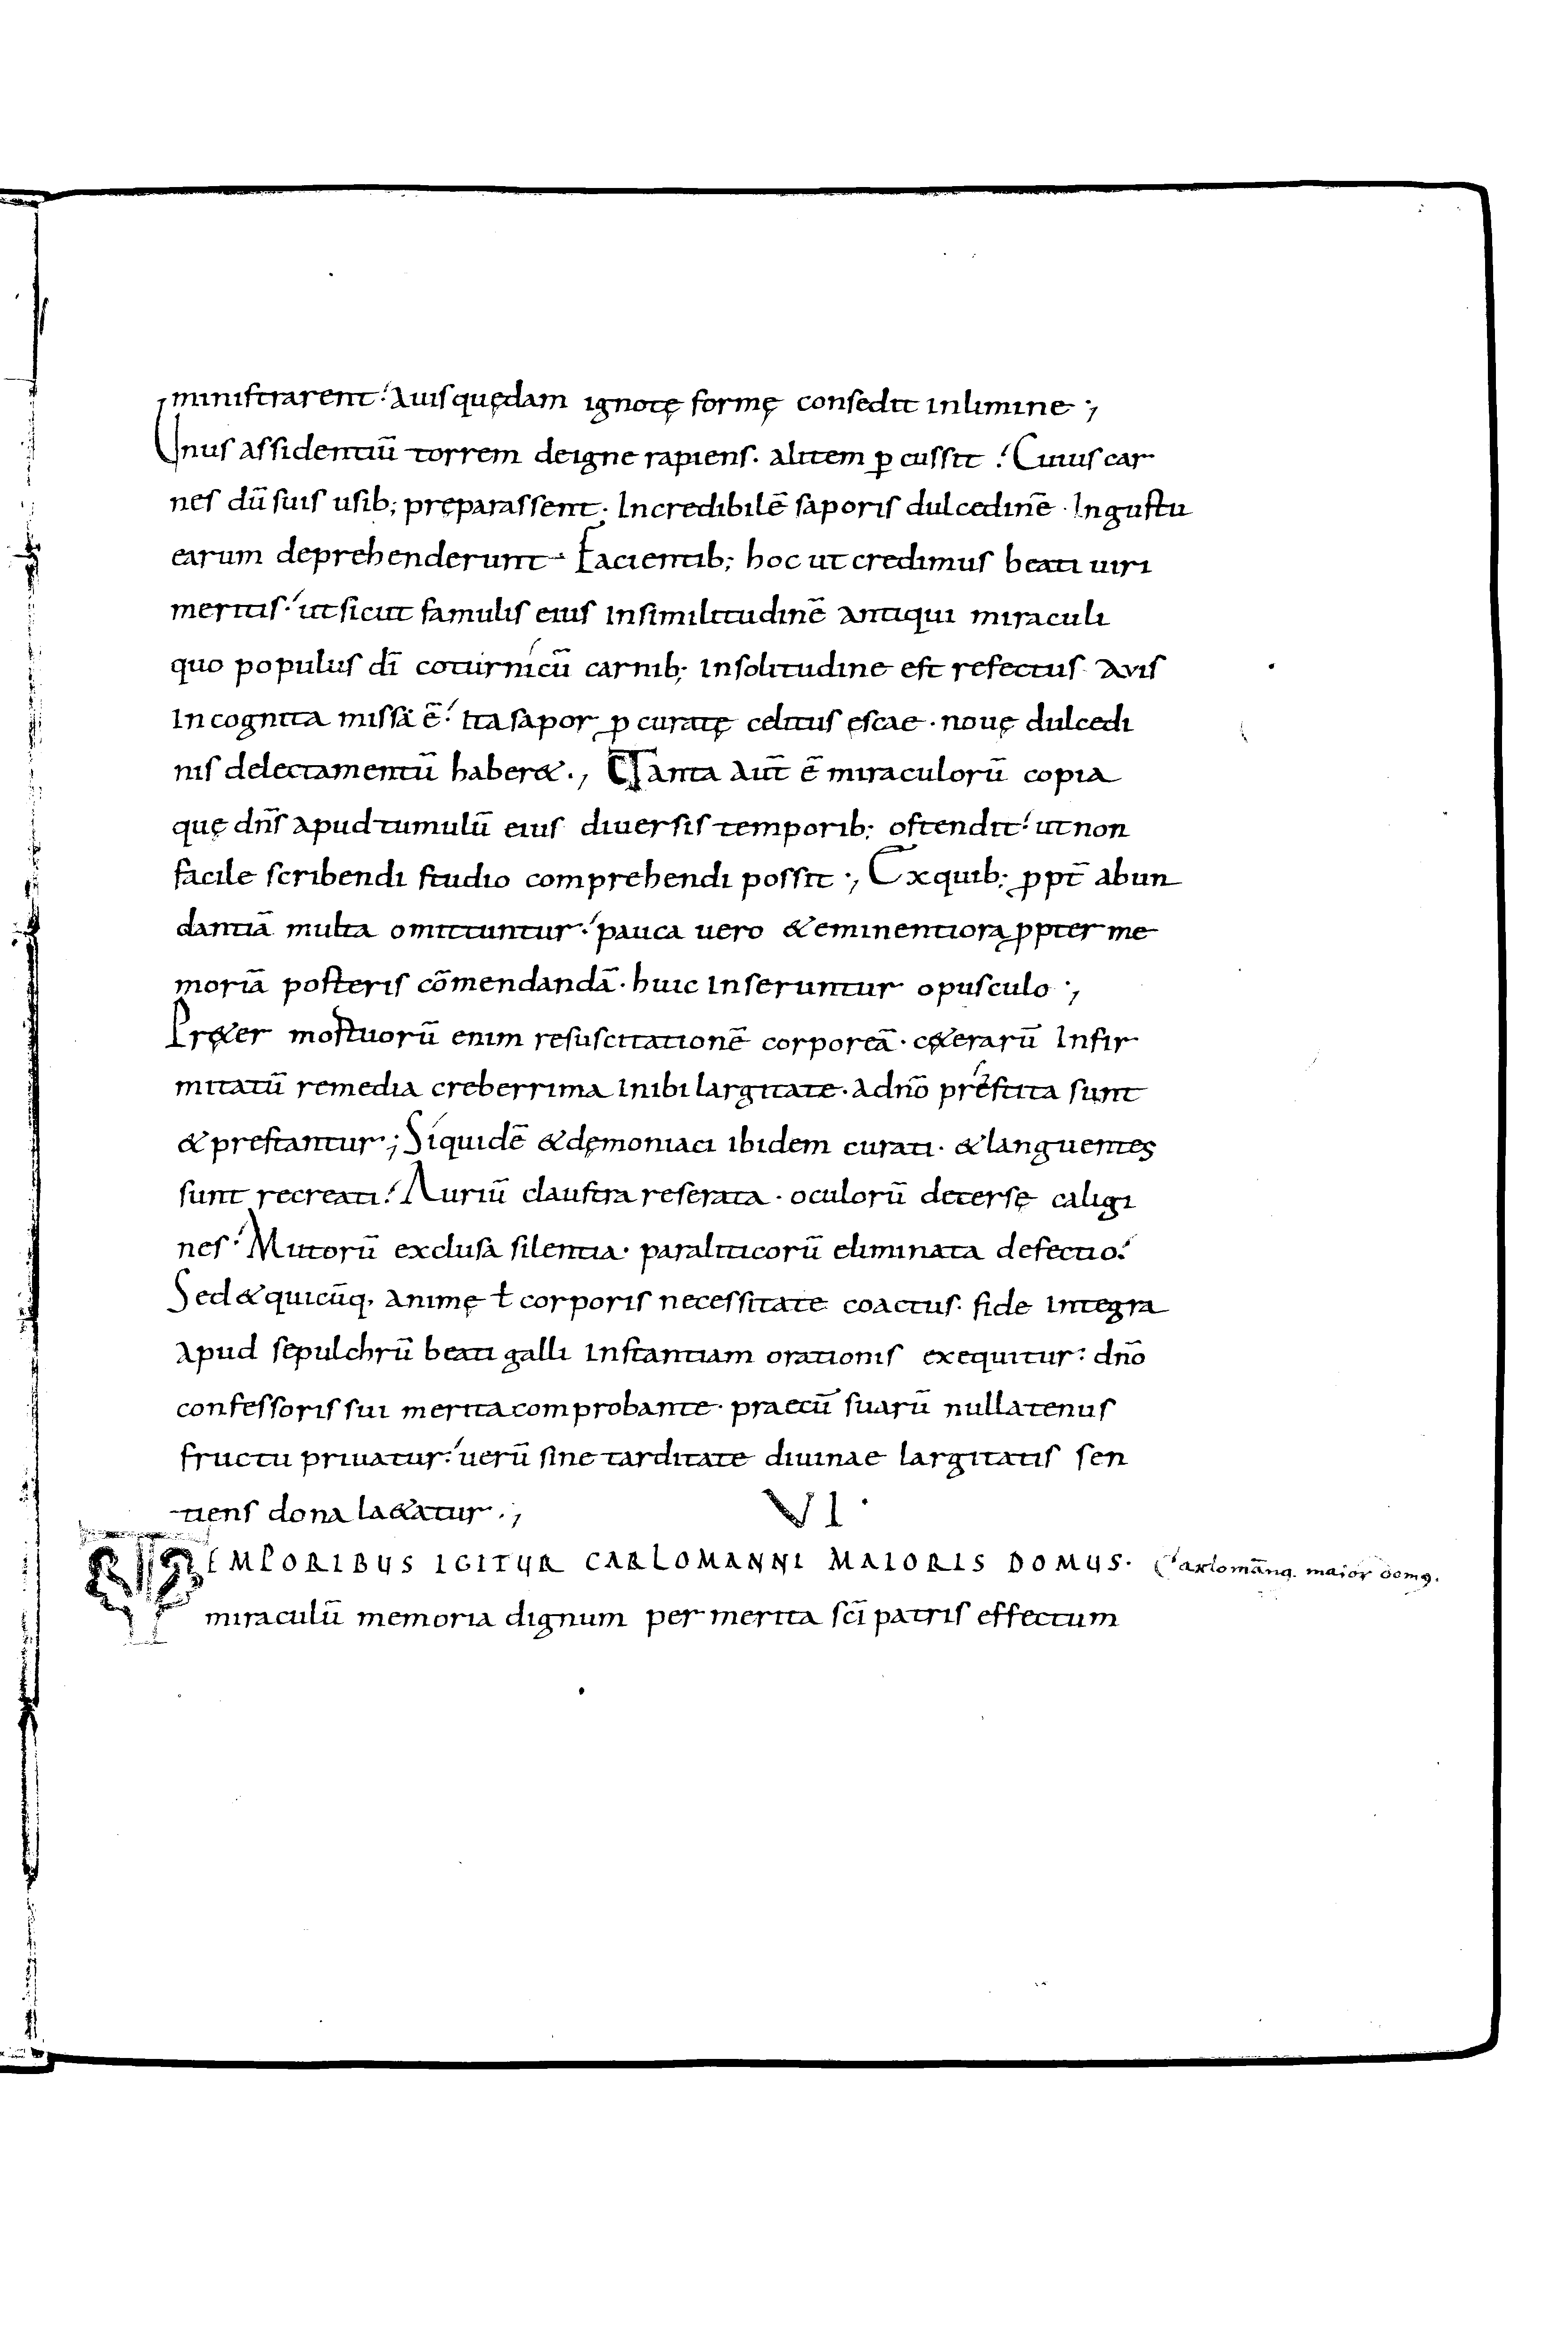 ministrarent· auis quędam ignotę formę consedit in limine ;
Unus assidentiū torrem de igne rapiens· alitem ꝑcussit · Cuius car
nes dū suis usib; pręparassent· Incredibilē saporis dulcedinē · In gustu
earum deprehenderunt· Facientib; hoc ut credimus beati uiri
meritis· ut sicut famulis eius in similitudinē antiqui miraculi
quo populus dī coturnicū carnib; in solitudine est refectus auis
incognita missa ē· ita sapor ꝓcuratę celitus ęscae · nouę dulcedi
nis delectamentū haber& ·, Tanta aut̄ ē miraculorū copia
quę dn̄s apud tumulū eius diuersis temporib; ostendit· ut non
facile scribendi studio comprehendi possit ·, Ex quib; ꝓpt̄ abun
dantiā multa omittuntur· pauca uero & eminentiora ꝓpter me
moriā posteris cōmendandā· huic inseruntur opusculo ·,
Pręt&er mortuorū enim resuscitationē corporeā · cę&erarū infir
mitatū remedia creberrima inibi largitate· a dn̄o prestita sunt
& prestantur ; Siquidē & dęmoniaci ibidem curati · & languentes
sunt recreati· Auriū claustra reserata · oculorū detersę caligi
nes· Mutorū exclusa silentia· paraliticorū eliminata defectio·
Sed & quicūq· animę ł corporis necessitate coactus· fide integra
apud sepulchrū beati galli instantiam orationis exequitur· dn̄o
confessoris sui merita comprobante· praecū suarū nullatenus
fructu priuatur· uerū sine tarditate diuinae largitatis sen
tiens dona la&atur ·,
VI·
TEMPORIBUS IGITUR CARLOMANNI MAIORIS DOMUS·
Carlomānꝰ. maior domꝰ.
miraculū memoria dignum per merita sc̄i patris effectum